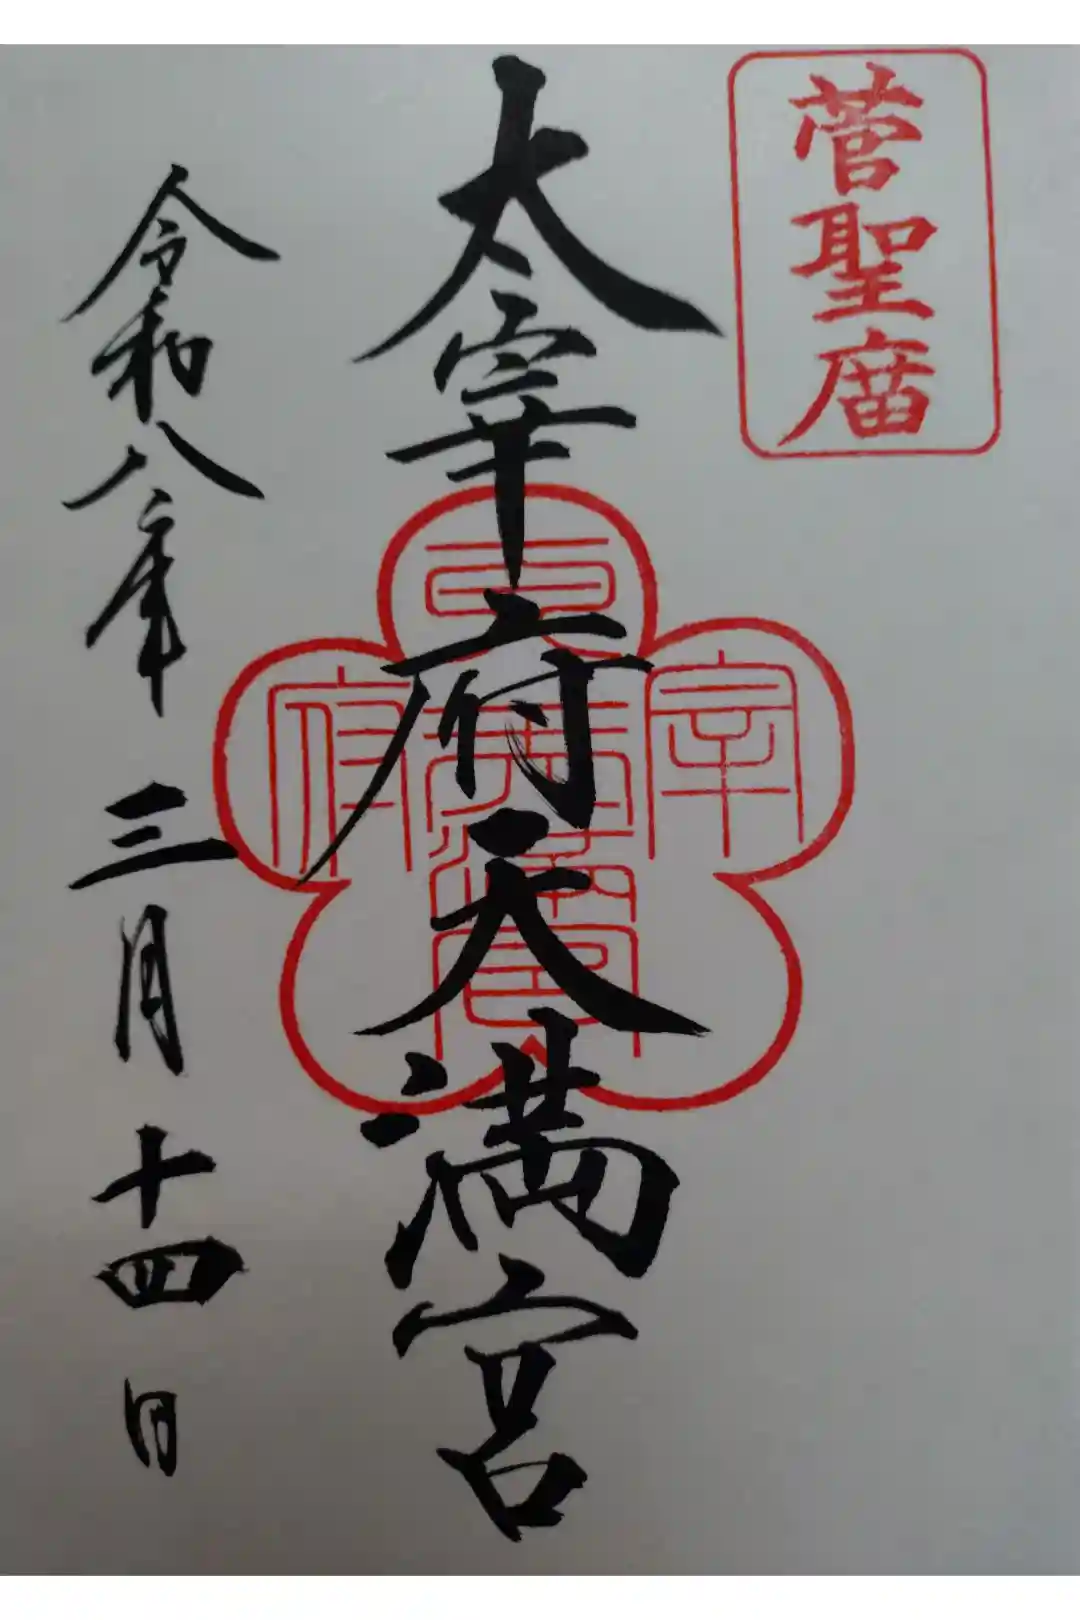 菅聖庿
太宰府天満宮
太
宰
府
天満宮
令和八年三月十四日